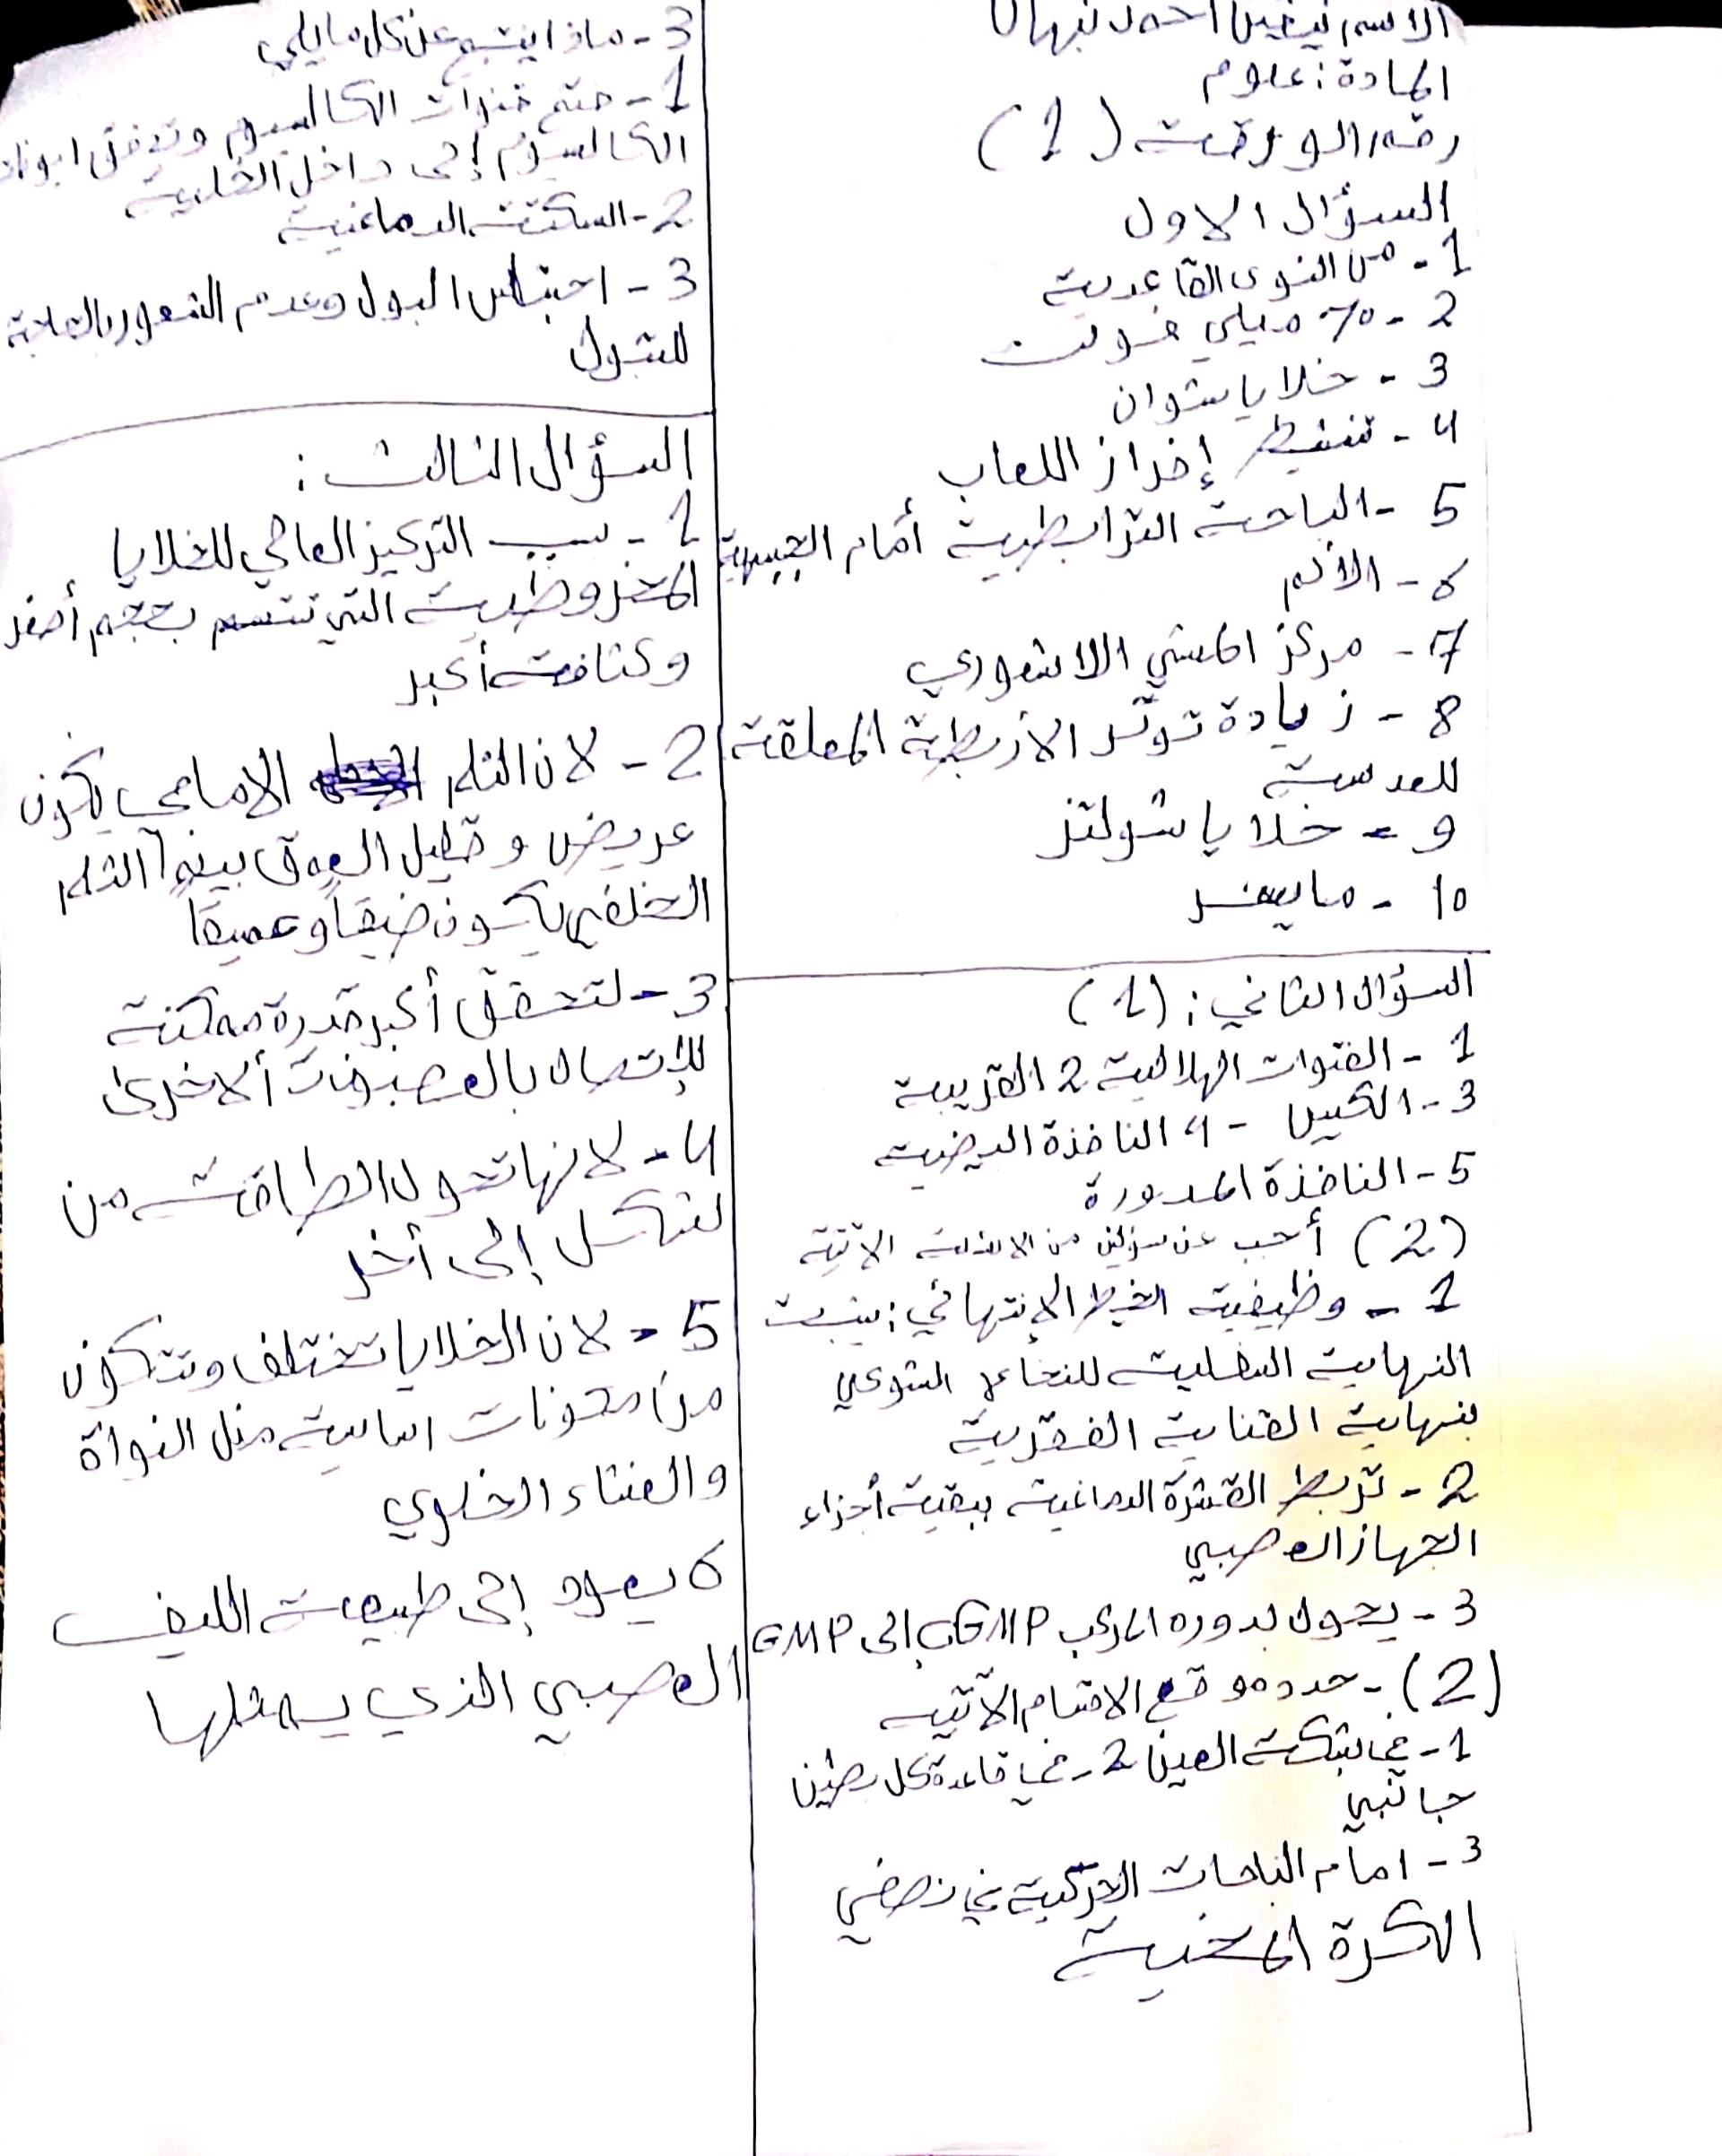 الاسم نيفين احمد نبهان
المادة: علوم
رقم الورقة (1)
السؤال الاول
1 - من النوى القاعدية
2 - 70- ميلي فولت
3 - خلايا شوان
4 - تنشيط إفراز اللعاب
5 - الباحة الترابطية أمام الجبهية
6 - الألم
7 - مركز المشي اللاشعوري
8 - زيادة توتر الأربطة المعلقة
للعدسة
9 - خلايا شولتز
10 - مايسنر
السؤال الثاني: (1)
1 - القنوات الهلالية 2 القريبة
3 - الكييس - 4 النافذة البيضية
5 - النافذة المدورة
(2) أجب عن سؤالين من الاسئلة الآتية
1 - وظيفية الخيط الإنتهائي: يثبت
النهاية السفلية للنخاع الشوكي
بنهاية القناية الفقرية
2 - تربط القشرة الدماغية ببقية أجزاء
الجهاز العصبي
3 - يحول بدوره المركب cGMP إلى GMP
(2) - حدد موقع الاقسام الآتية
1 - في شبكة العين 2 - في قاعدة كل بطين
جانبي
3 - امام الباحات الحركية في نصفي
الكرة المخية
3 - ماذا ينتج عن كل مايلي
1 - فتح قنوات الكالسيوم وتدفق ايونات
الكالسيوم إلى داخل الخلية
2 - السكتة الدماغية
3 - احتباس البول وعدم الشعور بالحاجة
للتبول
السؤال الثالث:
1 - بسبب التركيز العالي للخلايا
المخروطية التي تتسم بحجم أصغر
وكثافة أكبر
2 - لان الثلم الامامي يكون
عريض وقليل العمق بينما الثلم
الخلفي يكون ضيقاً وعميقاً
3 - لتحقق أكبر قدرة ممكنة
للإتصال بالعصبونات ألاخرى
4 - لانها تحول الطاقة من
شكل إلى أخر
5 - لان الخلايا تختلف وتتكون
من مكونات اساسية مثل النواة
والغشاء الخلوي
6 يعود إلى طبيعة الليف
العصبي الذي يمثلها